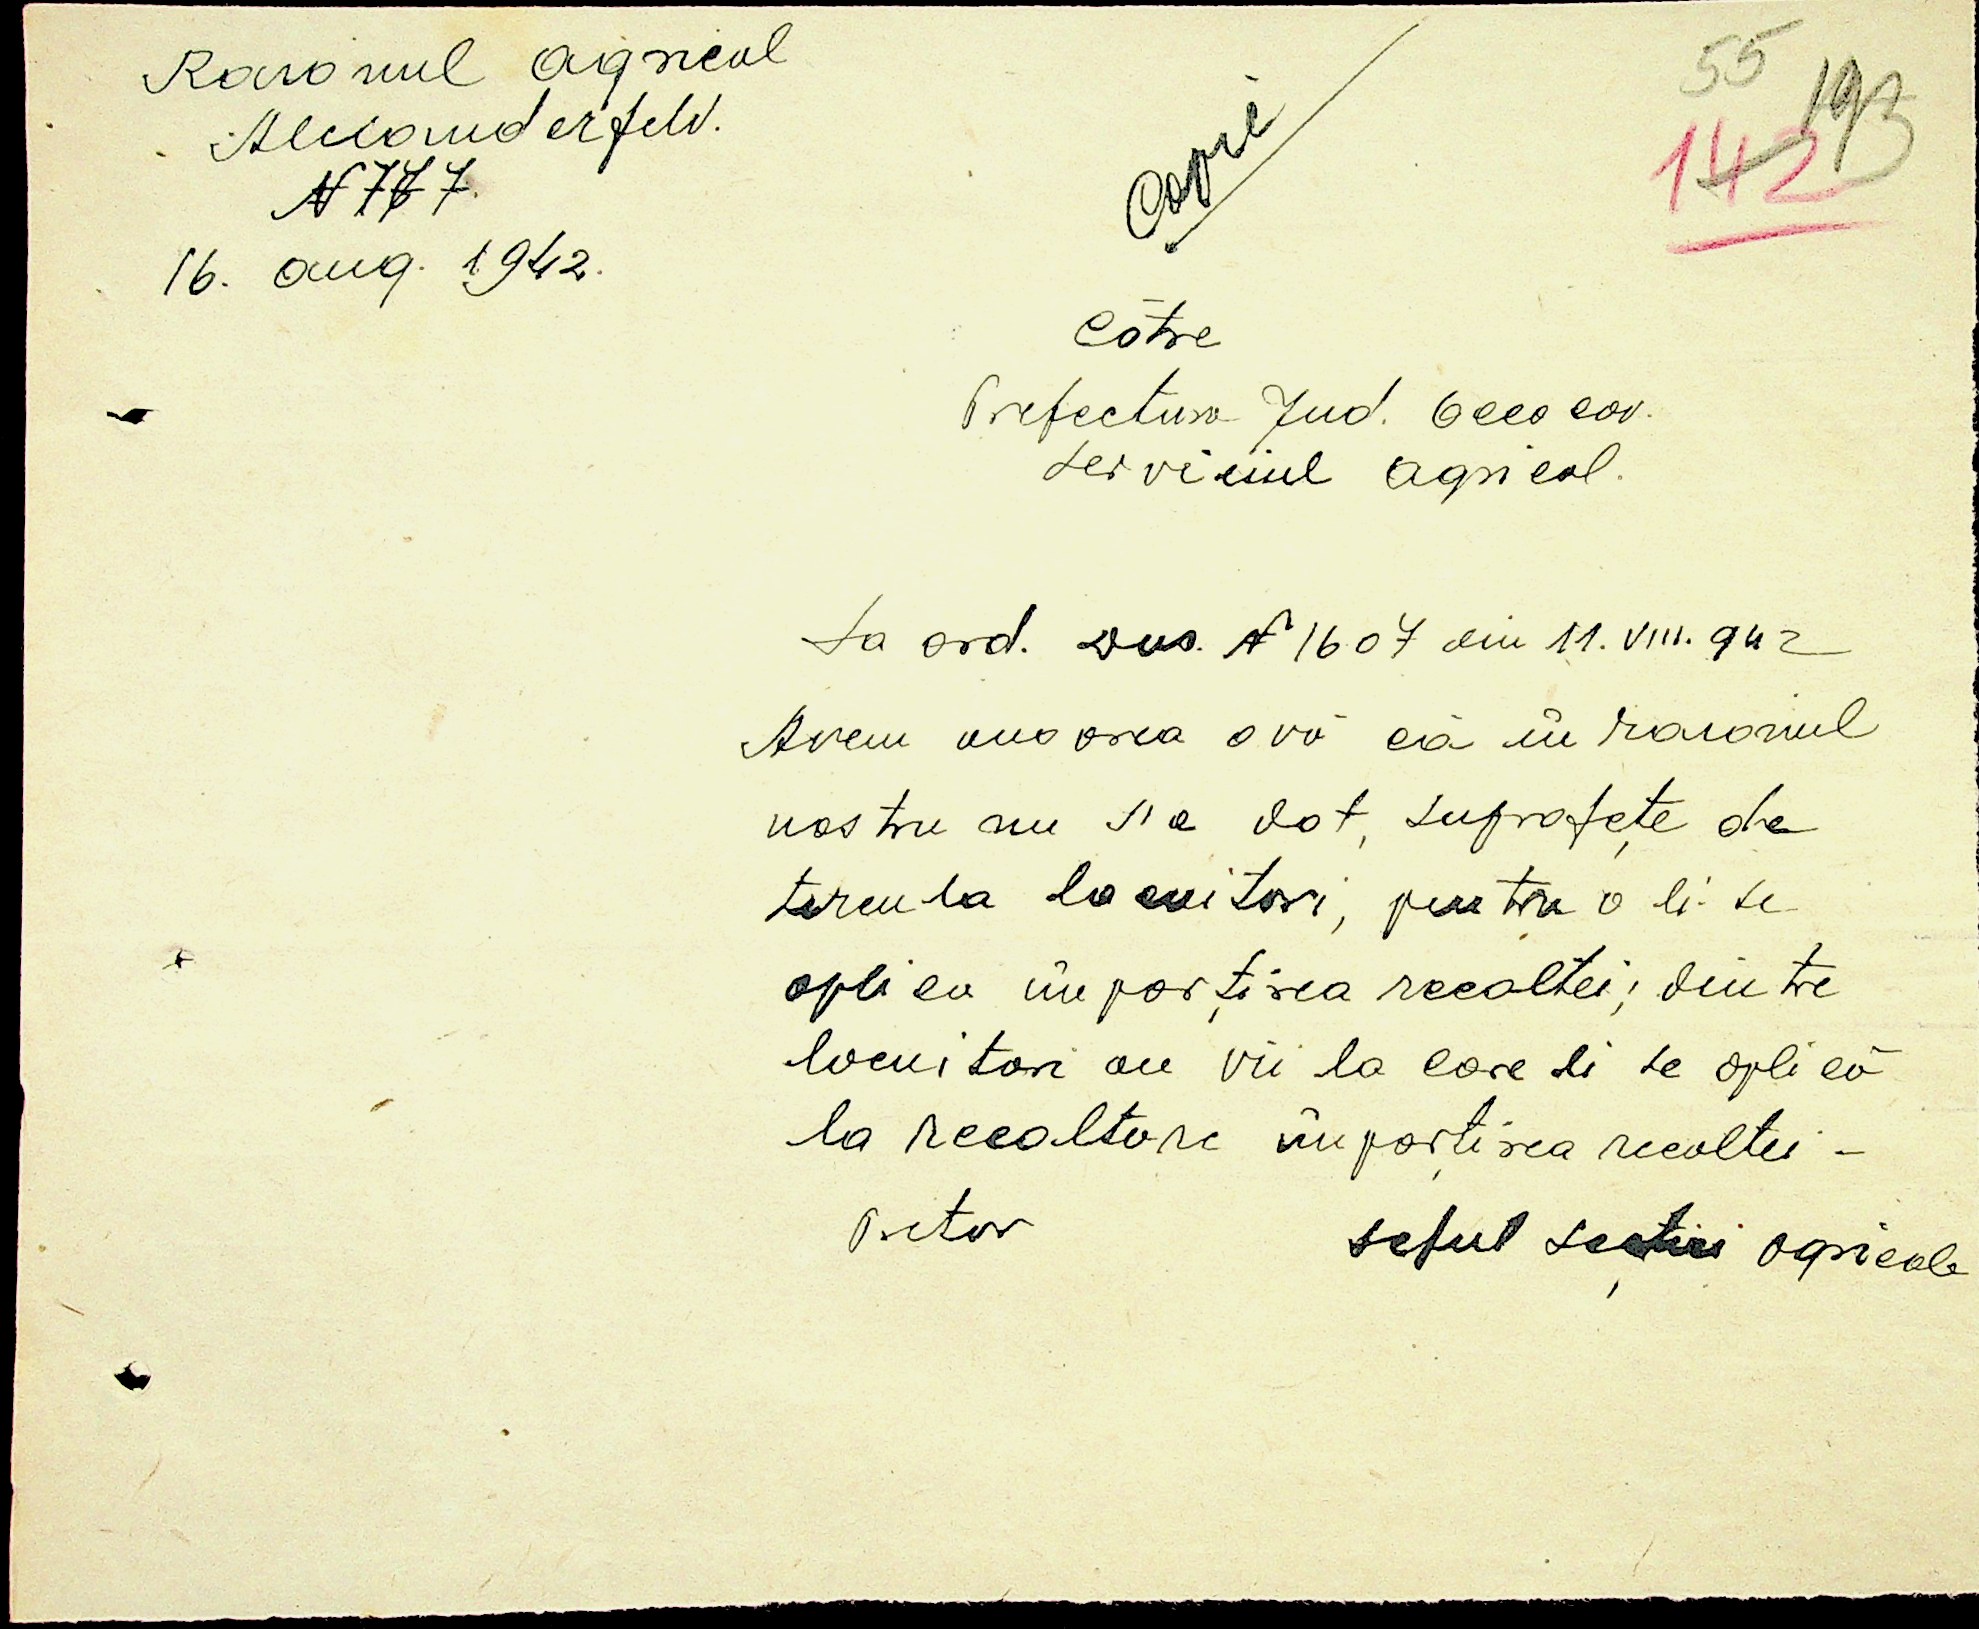 Raionul agricol
Alexanderfeld.
N 777.
16. aug. 1942.
Copie
55
193
142
Către
Prefectura Jud. Oceacov.
Serviciul agricol.
La ord. Dvs. N 1607 din 11.VIII.942
Avem onoarea a vă că în raionul
nostru nu s'a dat, suprafețe de
teren la locuitori, pentru a li se
aplica împarțirea recoltei; dintre
locuitori au vii la care li se aplică
la recoltare împarțirea recoltei -
Pretor
seful secției agricole